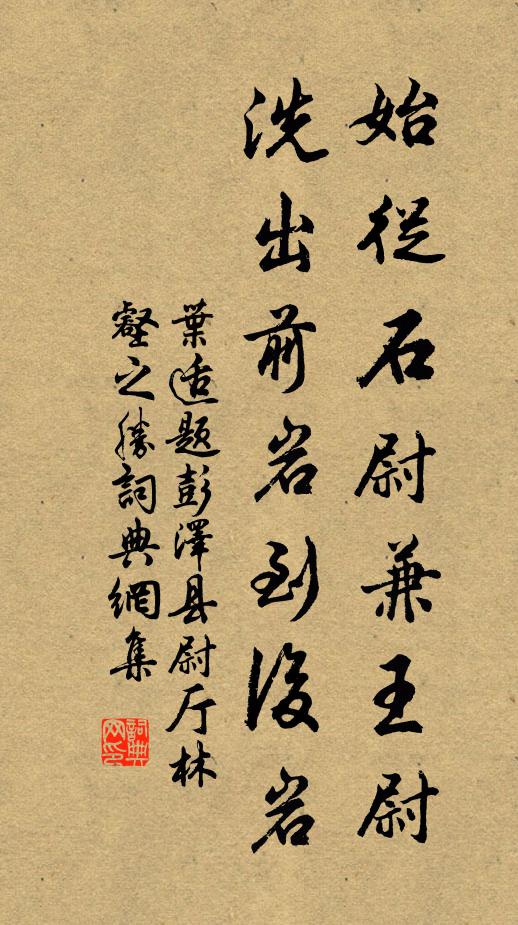 始從石尉兼王尉
洗出前岩到後岩
葉适題彭澤县尉厅林
壑之勝詞典網集
詞典
网印